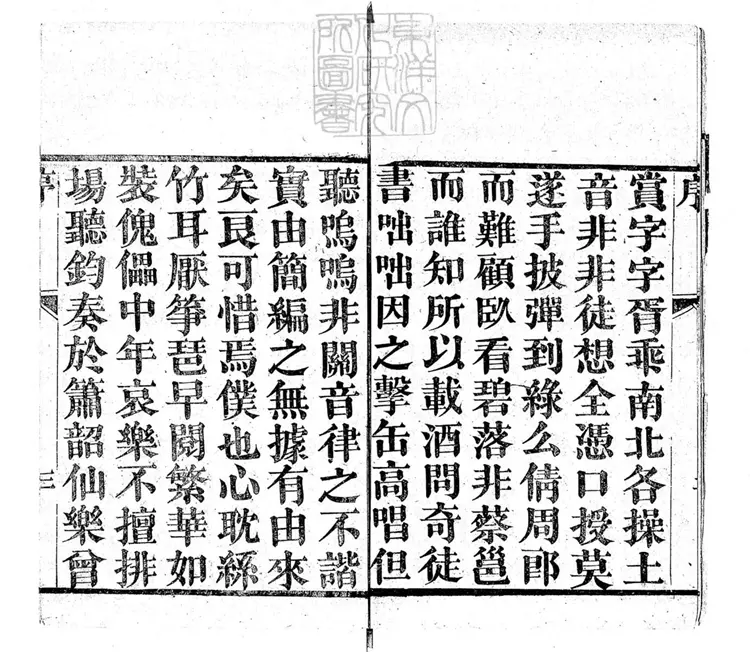 序
賞字字胥乖南北各操土
音非非徒想全憑口授莫
遂手披彈到綠么倩周郎
而難顧臥看碧落非蔡邕
而誰知所以載酒問奇徒
書咄咄因之擊缶高唱但
聽嗚嗚非關音律之不諧
實由簡編之無據有由來
矣良可惜焉僕也心耽絲
竹耳厭箏琶早閱繁華如
裝傀儡中年哀樂不擅排
場聽鈞奏於簫韶仙樂曾
序
三
東洋文
化研究
所圖書